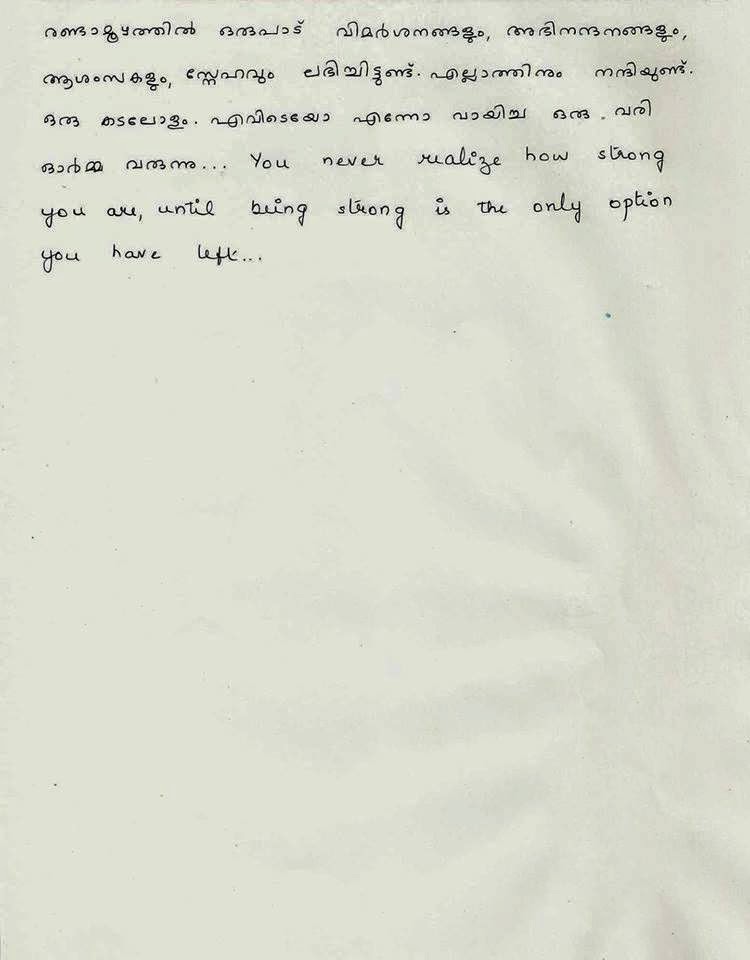 രണ്ടാമൂഴത്തിൽ ഒരുപാട് വിമർശനങ്ങളും, അഭിനന്ദനങ്ങളും,
ആശംസകളും, സ്നേഹവും ലഭിച്ചിട്ടുണ്ട്. എല്ലാത്തിനും നന്ദിയുണ്ട്.
ഒരു കടലോളം. എവിടെയോ എന്നോ വായിച്ച ഒരു വരി
ഓർമ്മ വരുന്നു... You never realize how strong
you are, until being strong is the only option
you have left...